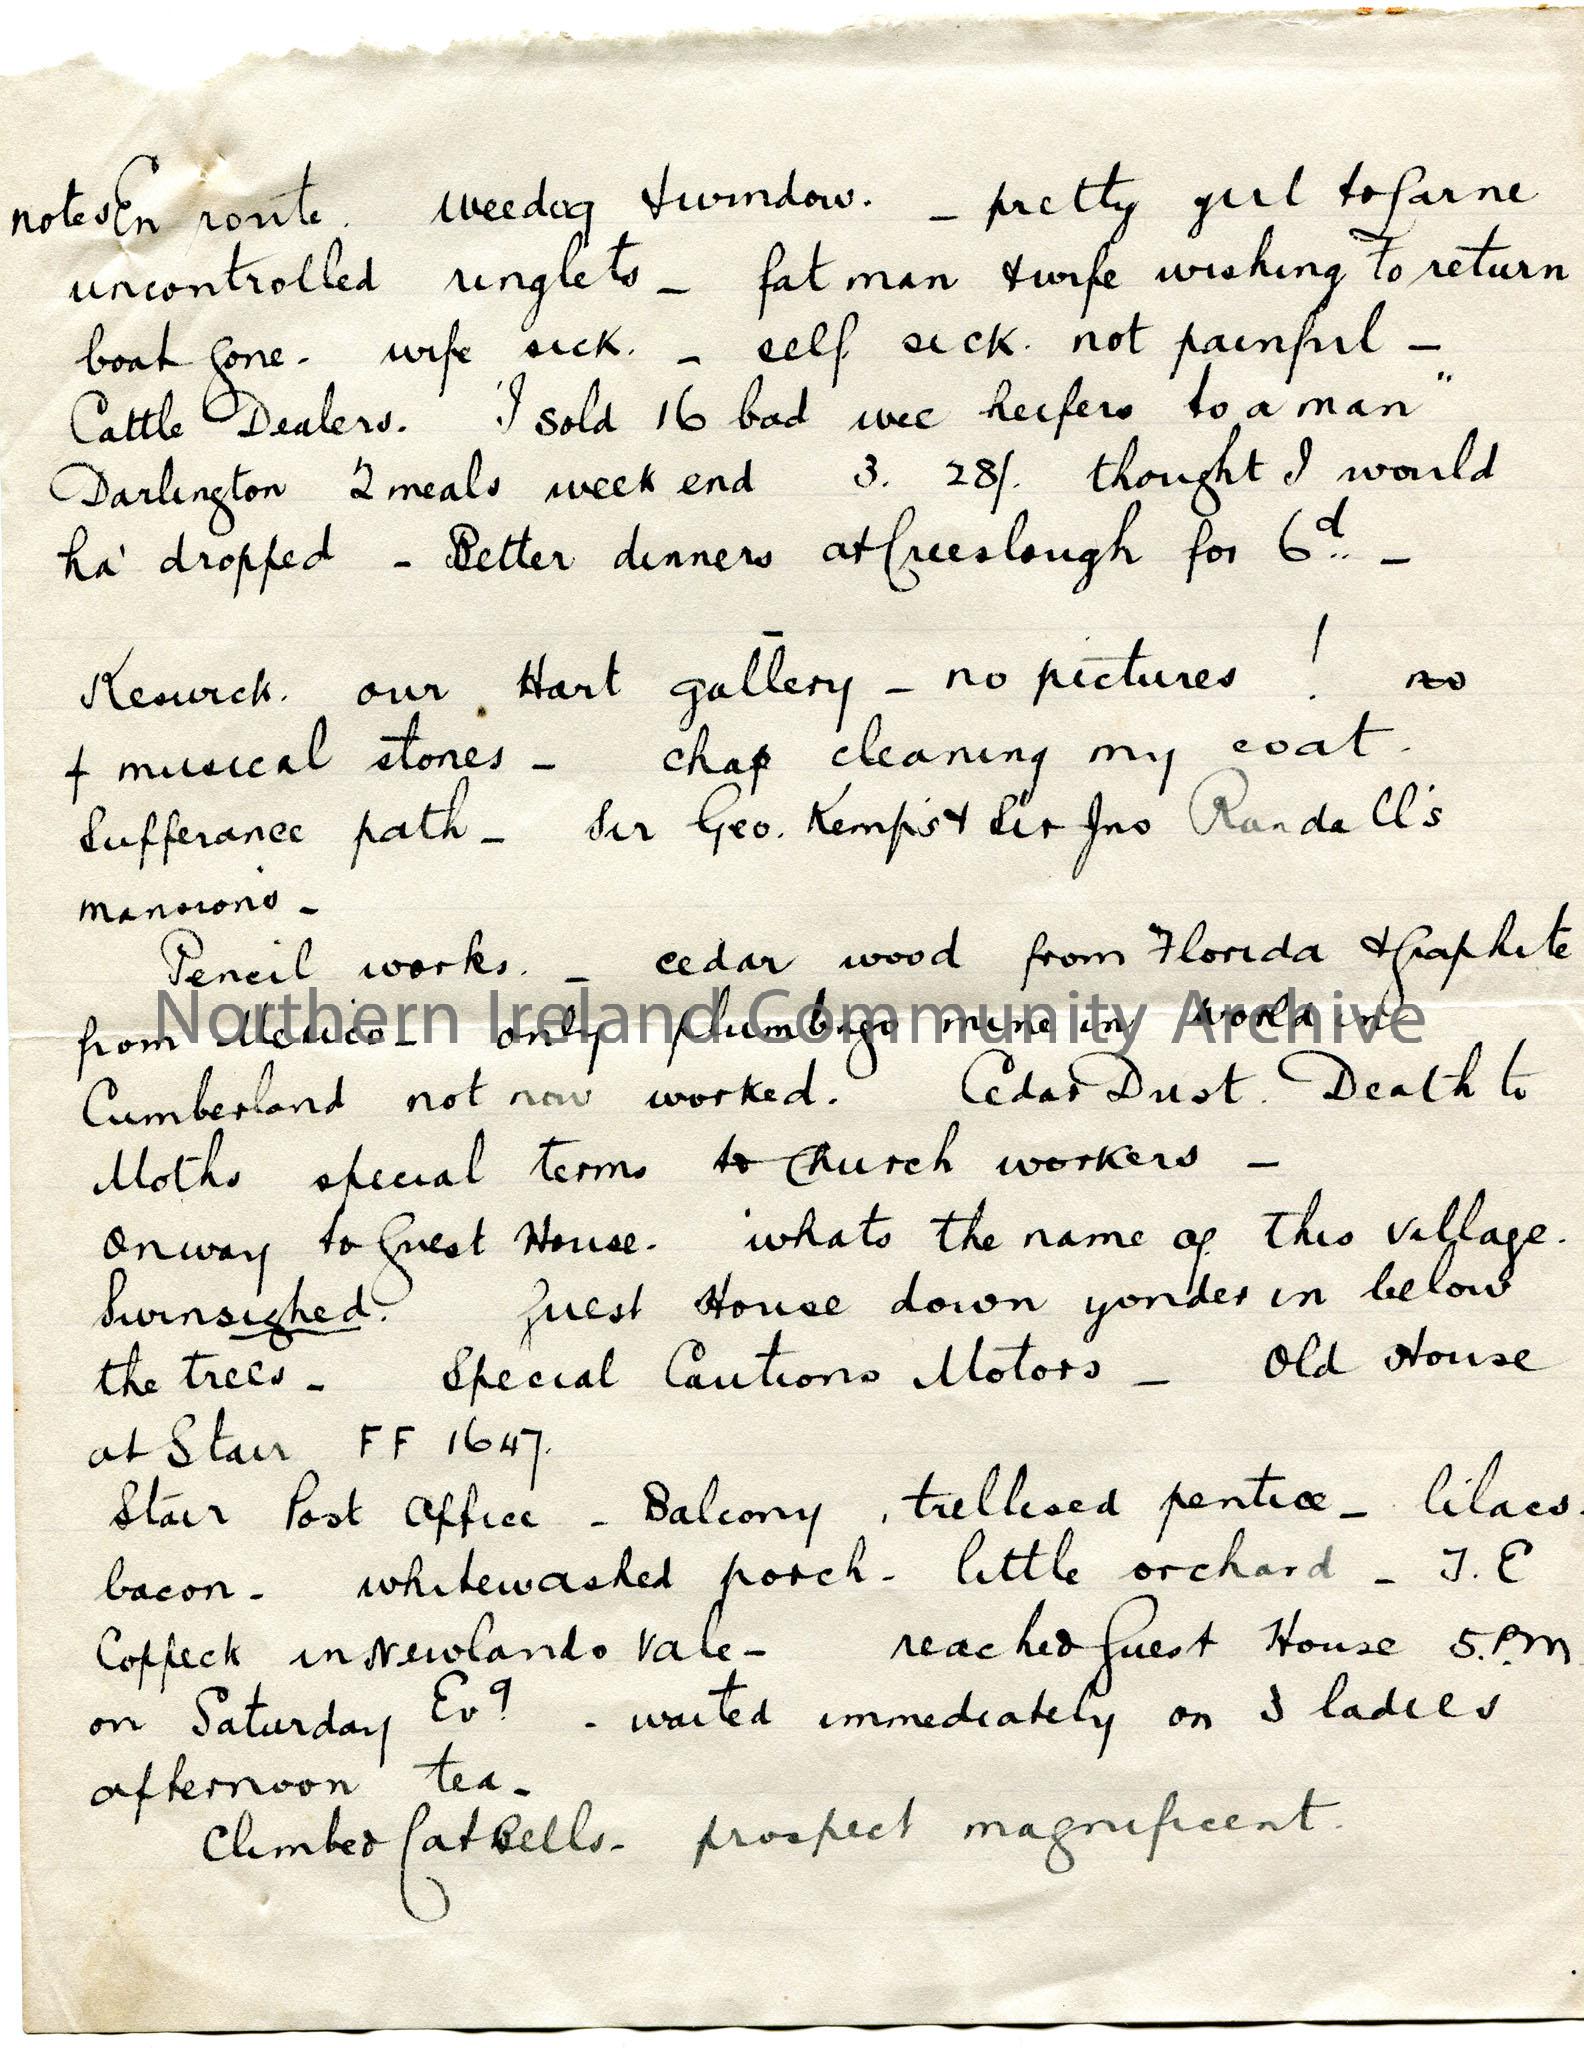 notes En route. wee dog & window. - pretty girl to Larne
uncontrolled ringlets - fat man & wife wishing to return
boat gone - wife sick. - self sick. not painful -
Cattle Dealers. "I sold 16 bad wee heifers to a man"
Darlington 2 meals week end 3. 28/. thought I would
ha' dropped - Better dinners at Creeslough for 6d. -
Keswick. our Hart gallery - no pictures! no
+ musical stones - chap cleaning my coat.
Sufferance path - Sir Geo. Kemp's & Sir Jno Randall's
mansions -
Pencil works. - cedar wood from Florida & Graphite
from Mexico - only plumbago mine in world in
Northern Ireland Community Archive
Cumberland not now worked. Cedar Dust. Death to
Moths special terms to Church workers -
On way to Guest House. whats the name of this village.
Swinsighed. Guest House down yonder in below
the trees - Special Cautions Motors - Old House
at Stair FF 1647.
Stair Post Office - Balcony, trellised pentice - lilacs.
bacon - whitewashed porch - little orchard - T. E
in Newlands Vale - reached Guest House 5. P.M.
on Saturday Evg - waited immediately on 3 ladies
afternoon tea -
Climbed Cat Bells - prospect magnificent.